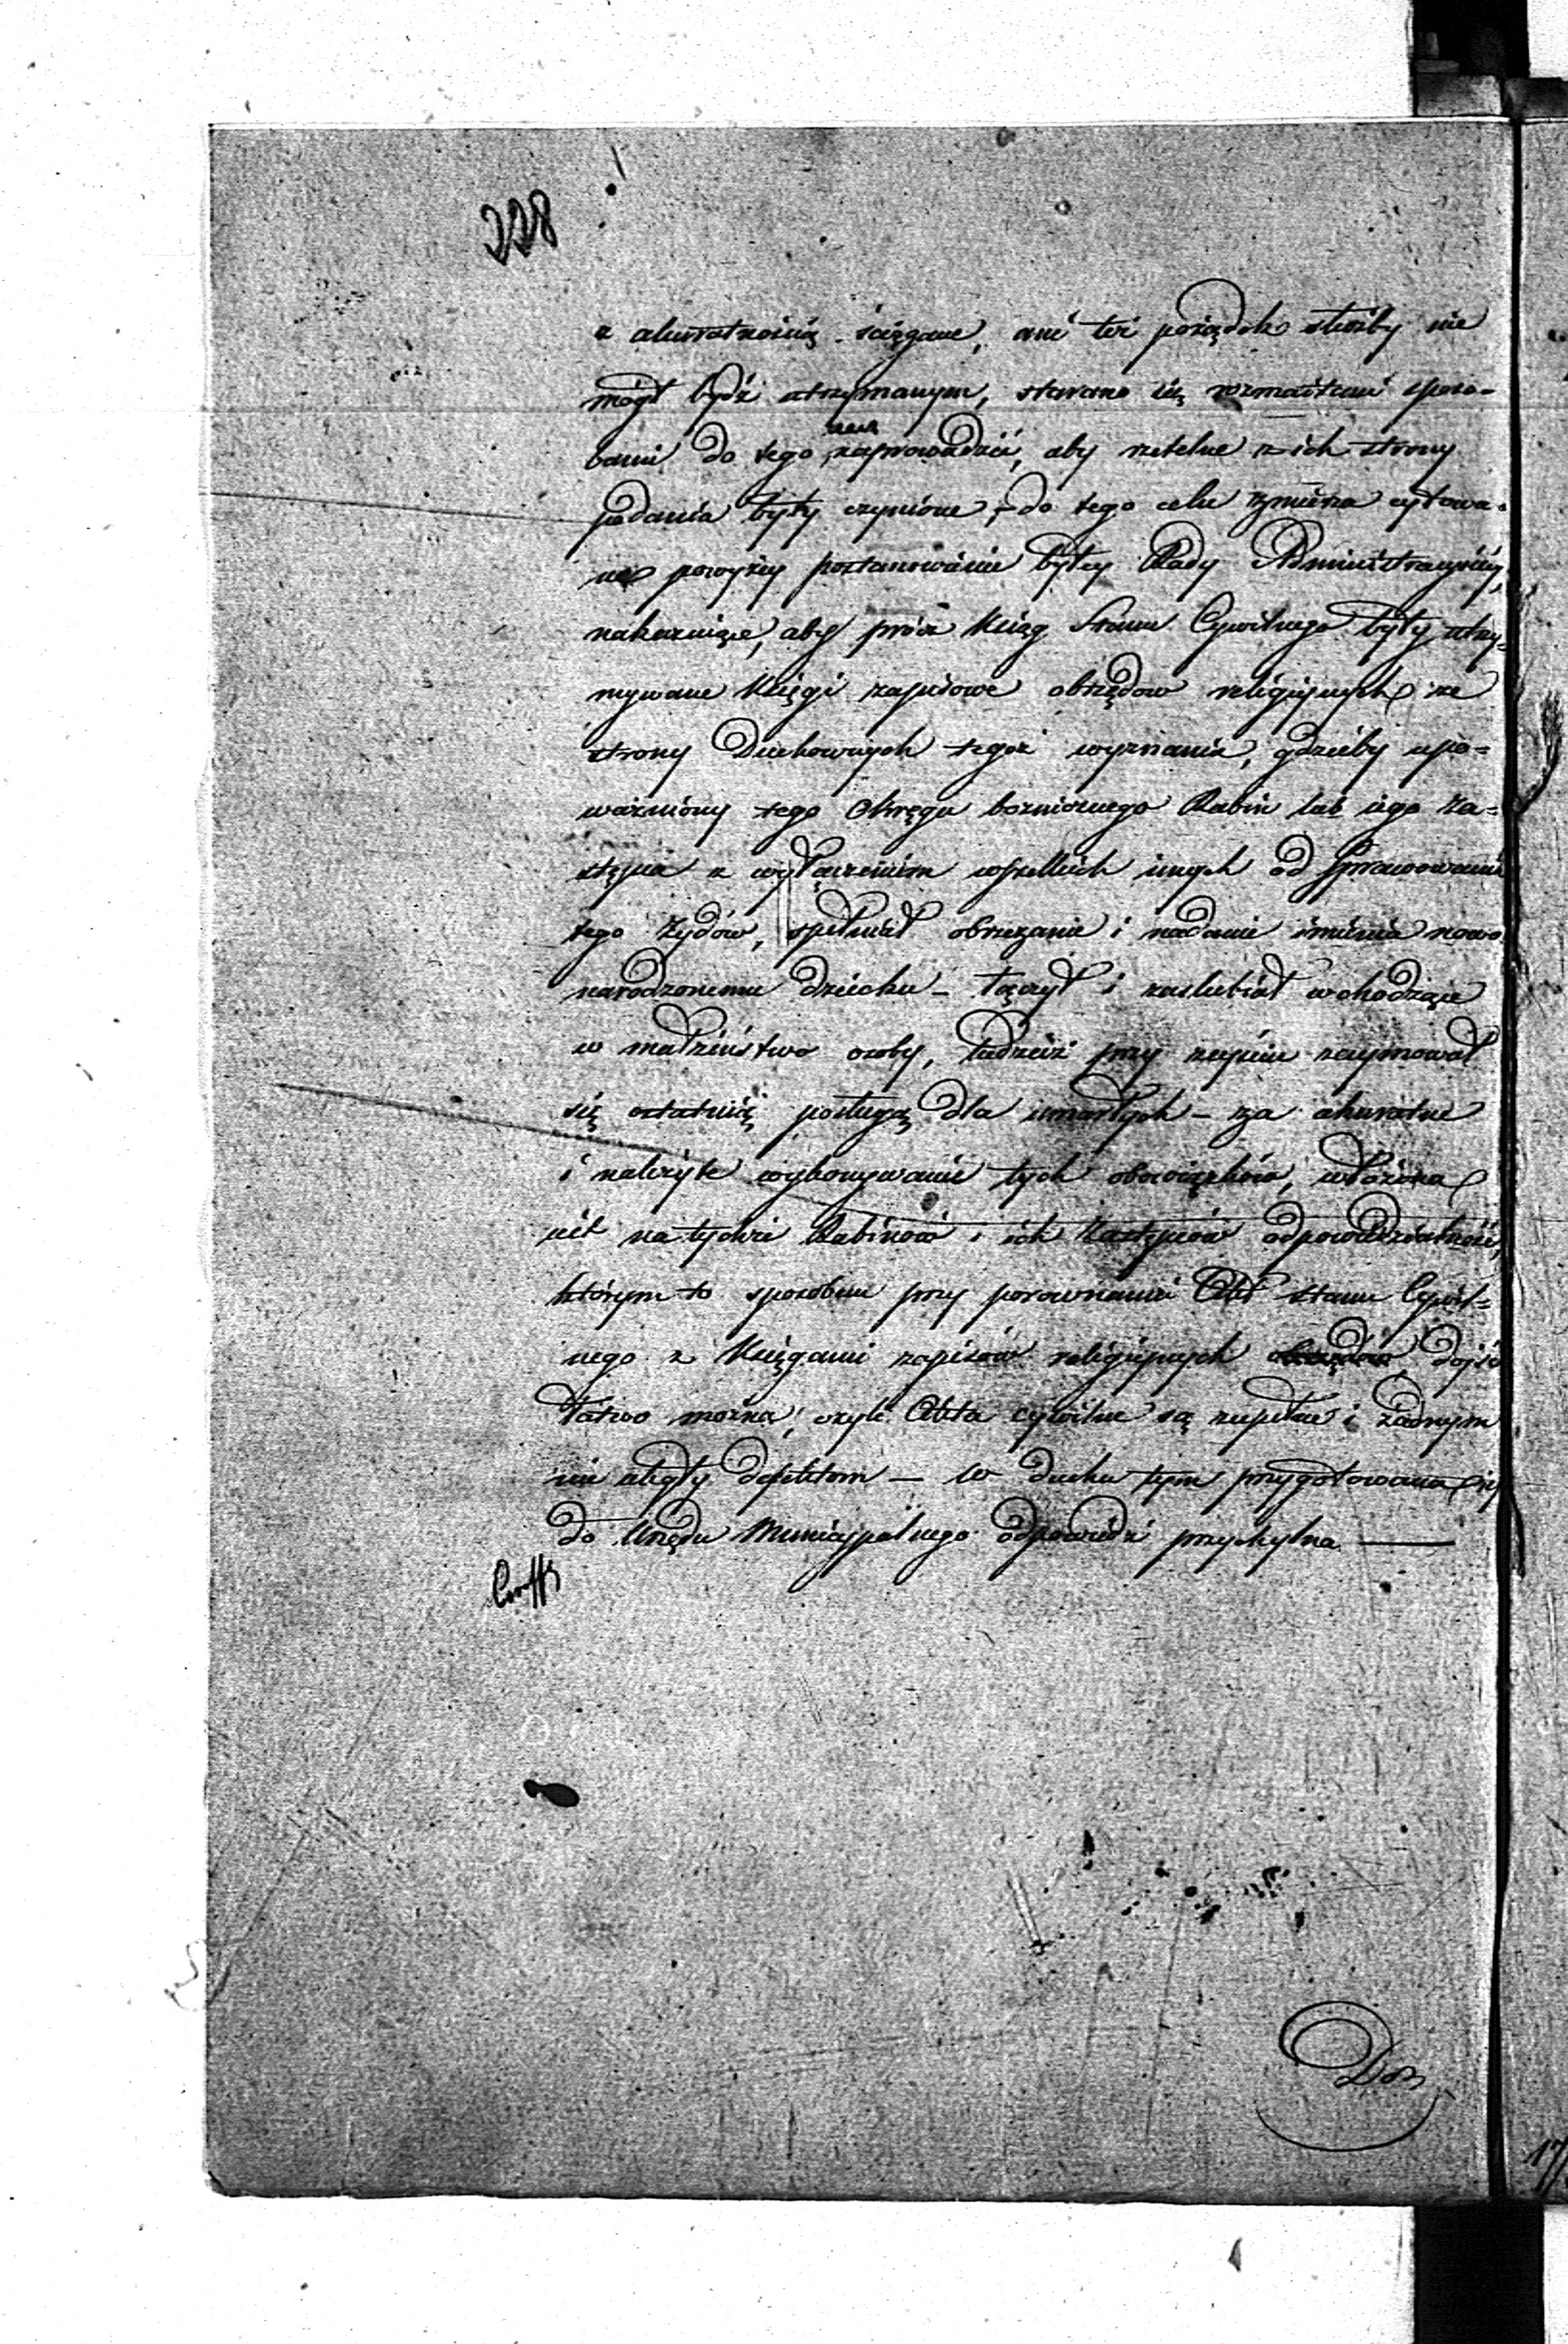 228
z akuratnością ściągane, ani też porządek służby nie
mógł bydź utrzymanym, starano się rozmaitemi sposo-
bami do tego zaprowadzić, aby rzetelne z ich strony
podania były czynione, do tego celu zmierza cytowa-
ne powyżey postanowienie byłey Rady Administracyiney,
nakazuiące, aby prócz Ksiąg Stanu Cywilnego były utrzy-
mywane Księgi zapisowe obrzędów religijnych ze
strony Duchownych tegoż wyznania, gdzieby upo-
ważniony tego Okręgu bożniczego Rabin lub iego Za-
stępca z wyłączeniem wszelkich innych od sprawowania
tego Żydów, spełniał obrzezanie i nadanie imienia nowo
narodzonemu dziecku - łączył i zaślubiał wchodzące
w małżeństwo osoby, tudzież przy zeyściu zaymował
się ostatnią posługą dla umarłych - za akuratne
i należyte wykonywanie tych obowiązków, włożona
iest na tychże Rabinów i ich Zastępców odpowiedzialność,
którym to sposobem przy porównaniu Akt stanu Cywil-
nego z Księgami zapisów religijnych obrzędów dojść
łatwo można, czyli Akta cywilne są zupełne i żadnym
nie uległy defektom - w duchu tym przygotowana iest
do Urzędu Municypalnego odpowiedź przychylna